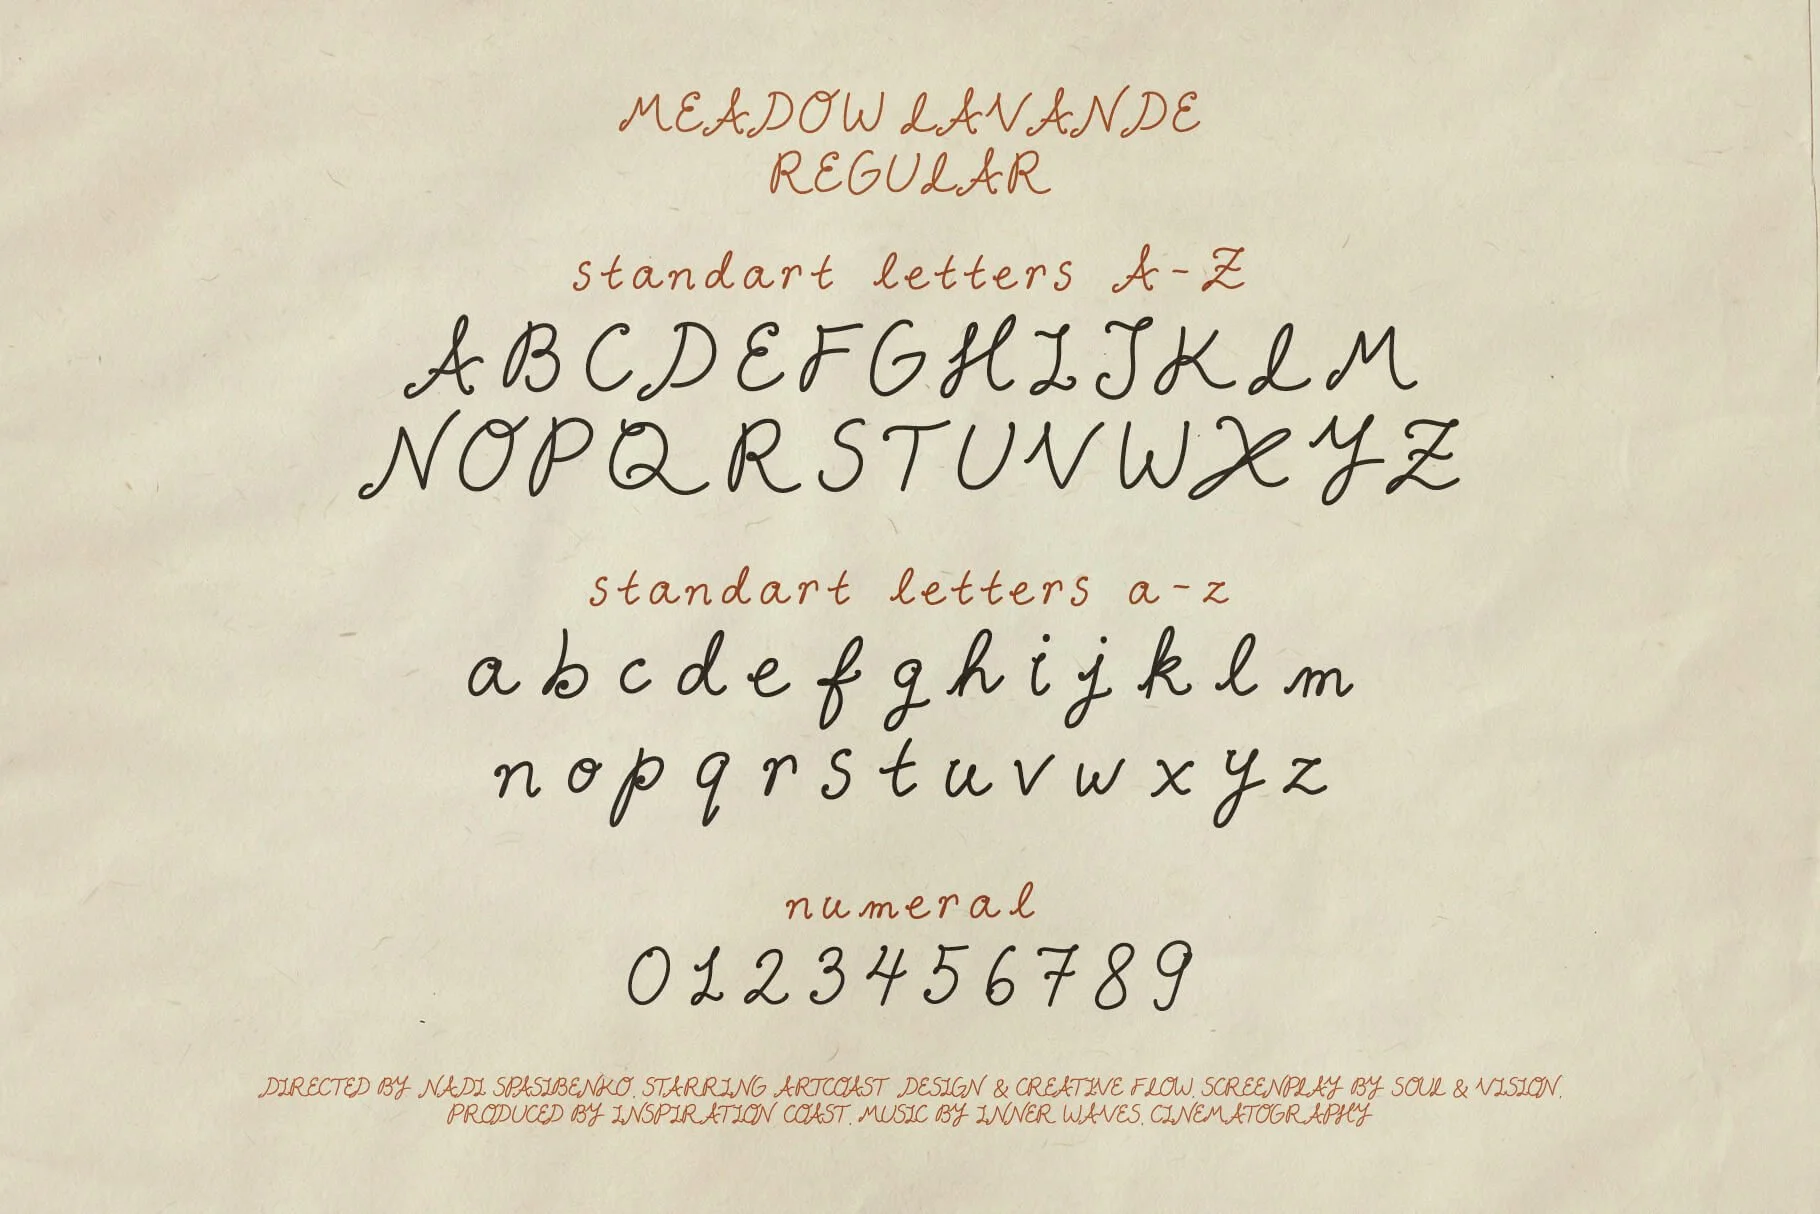 MEADOW LAVANDE
REGULAR
standart letters A-Z
A B C D E F G H I J K L M
N O P Q R S T U V W X Y Z
standart letters a-z
a b c d e f g h i j k l m
n o p q r s t u v w x y z
numeral
0 1 2 3 4 5 6 7 8 9
DIRECTED BY NADI SPASIBENKO. STARRING ARTCOAST DESIGN & CREATIVE FLOW. SCREENPLAY BY SOUL & VISION.
PRODUCED BY INSPIRATION COAST. MUSIC BY INNER WAVES. CINEMATOGRAPHY